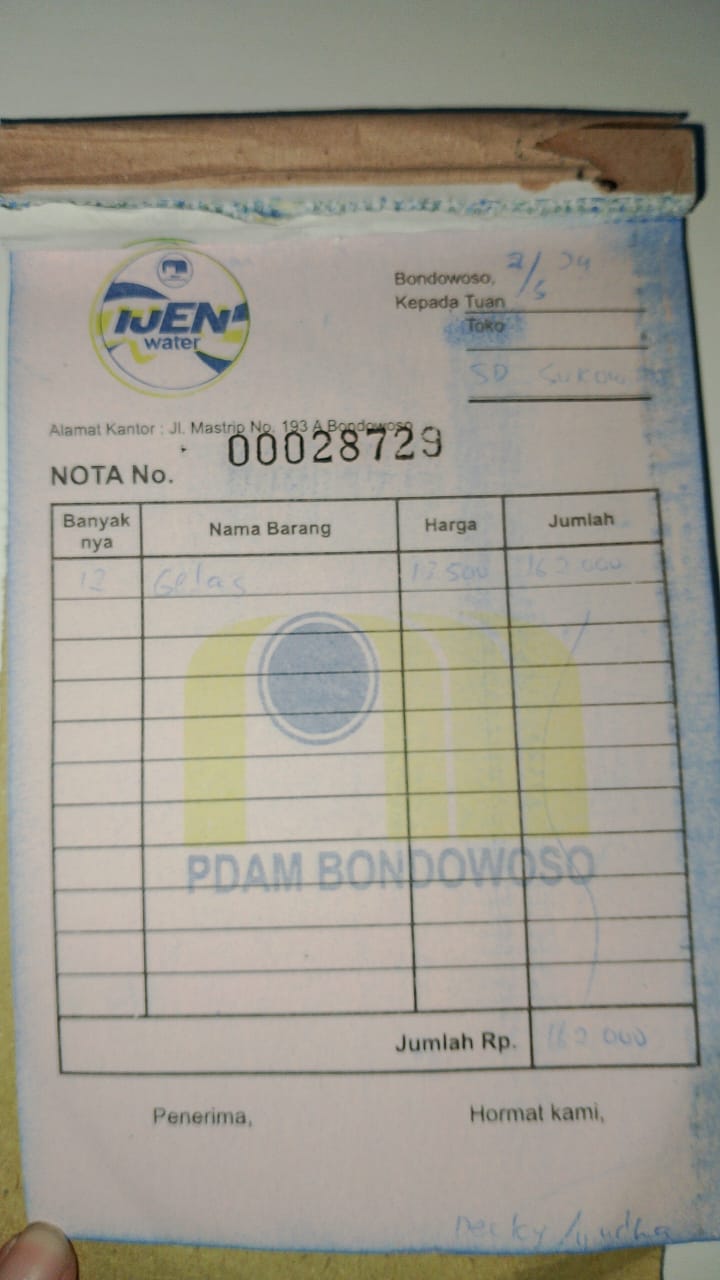 IJEN
water
Bondowoso, 2/5 24
Kepada Tuan
Toko
SD
Alamat Kantor : Jl. Mastrip No. 193 A Bondowoso
NOTA No. 00028729
Banyak nya Nama Barang Harga Jumlah
12 Gelas 13.500 162.000
PDAM BONDOWOSO
Jumlah Rp. 162.000
Penerima, Hormat kami,